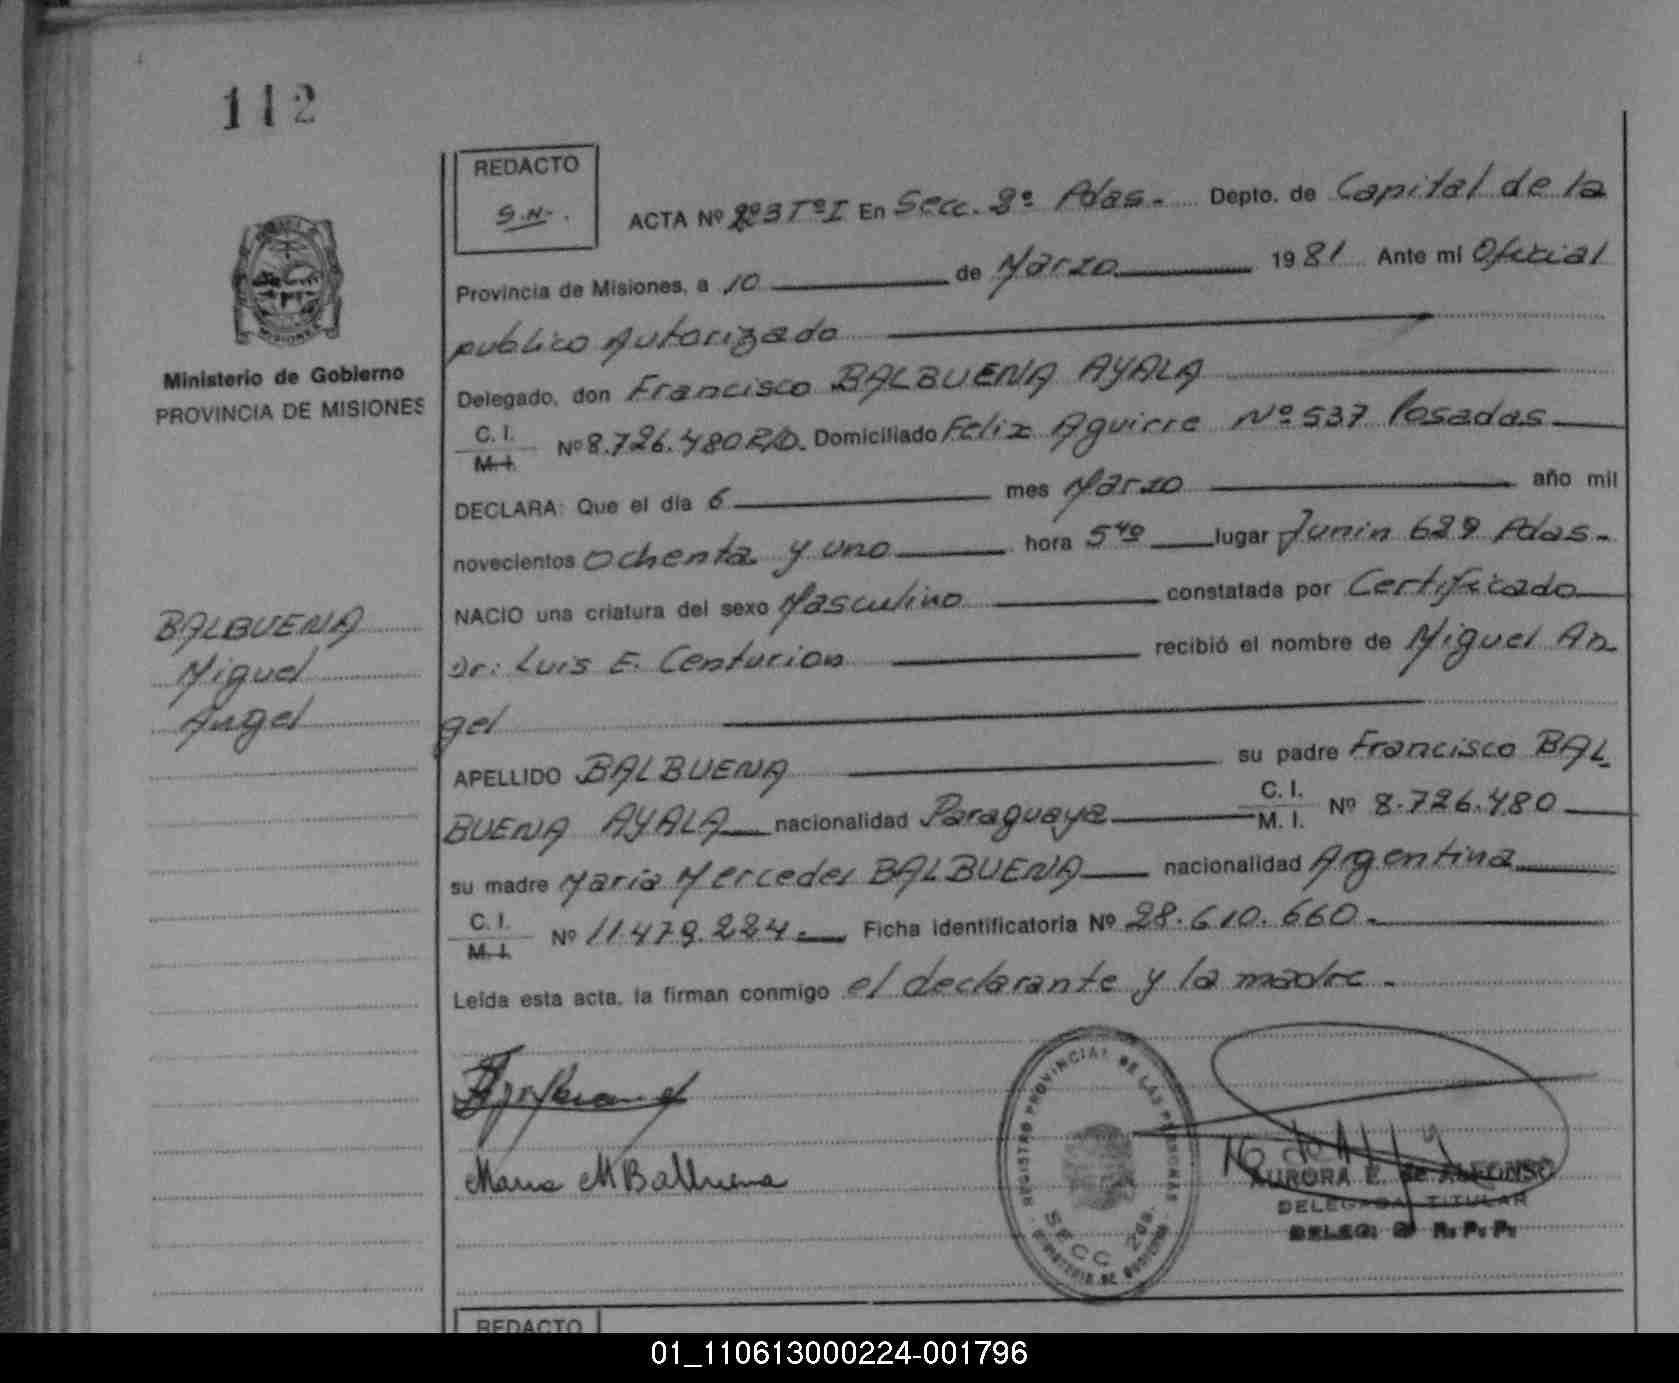 112
REDACTO
S.N-.
ACTA Nº 223 TºI En Secc. 2º Pdas. Depto. de Capital de la
Provincia de Misiones, a 10 de Marzo 1981 Ante mi Oficial
publico Autorizado
Ministerio de Gobierno
PROVINCIA DE MISIONES
Delegado, don Francisco BALBUENA AYALA
C. I.
M. I. Nº 8.726.480 Domiciliado Felix Aguirre Nº 537 Posadas
DECLARA: Que el día 6 mes Marzo año mil
novecientos ochenta y uno hora 5 40 lugar Junin 689 Pdas.
NACIO una criatura del sexo Masculino constatada por Certificado
Dr: Luis E. Centurion recibió el nombre de Miguel An
gel
BALBUENA
Miguel
Angel
APELLIDO BALBUENA su padre Francisco BAL
BUENA AYALA nacionalidad Paraguaya C. I. M. I. Nº 8.726.480
su madre Maria Mercedes BALBUENA nacionalidad Argentina
C. I.
M. I. Nº 11.479.224. Ficha identificatoria Nº 28.610.660.
Leída esta acta, la firman conmigo el declarante y la madre.
Maria M Balbuena
REGISTRO PROVINCIAL DE LAS PERSONAS
SECC 2da.
AURORA E. de ALFONSO
DELEGADA TITULAR
DELEG. 2 R. P. P.
REDACTO
01_110613000224-001796